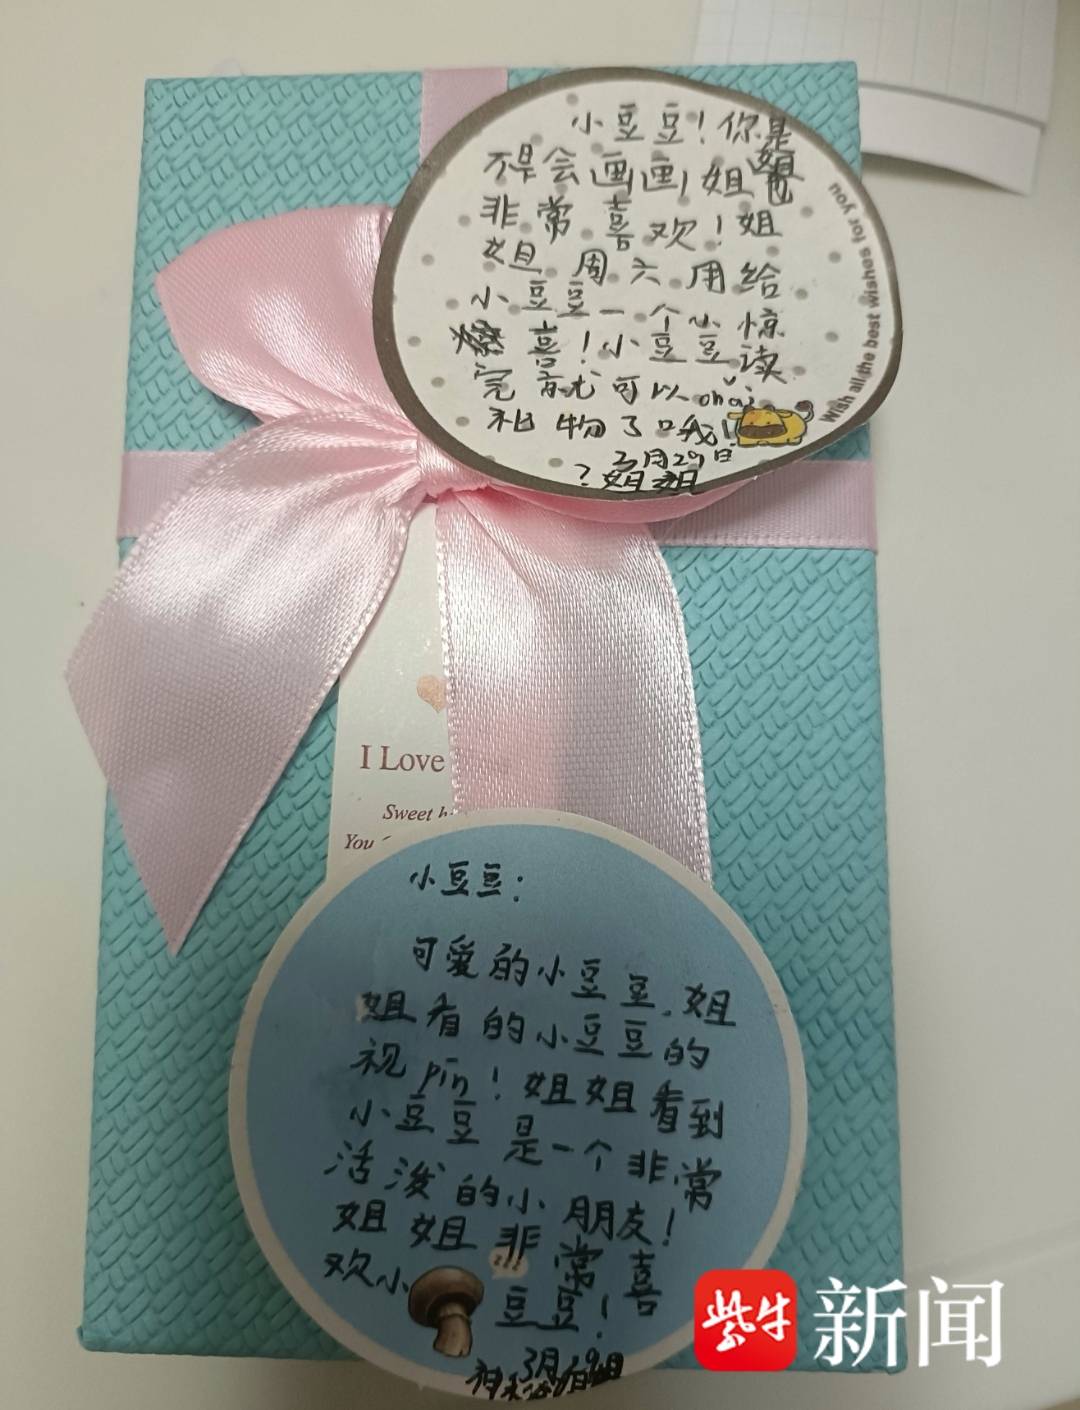 小豆豆！你是
不是会画画，姐姐也
非常喜欢！姐
姐周六用给
小豆豆一个小惊
喜！小豆豆读
完就可以chāi
礼物了哦！
3月29日
？姐姐
Wish all the best wishes for you
I Love
Sweet h
You
小豆豆：
可爱的小豆豆，姐
姐看的小豆豆的
视pin！姐姐看到
小豆豆是一个非常
活泼的小朋友！
姐姐非常喜
欢小豆豆！
3月29日
神秘的姐姐
紫牛新闻